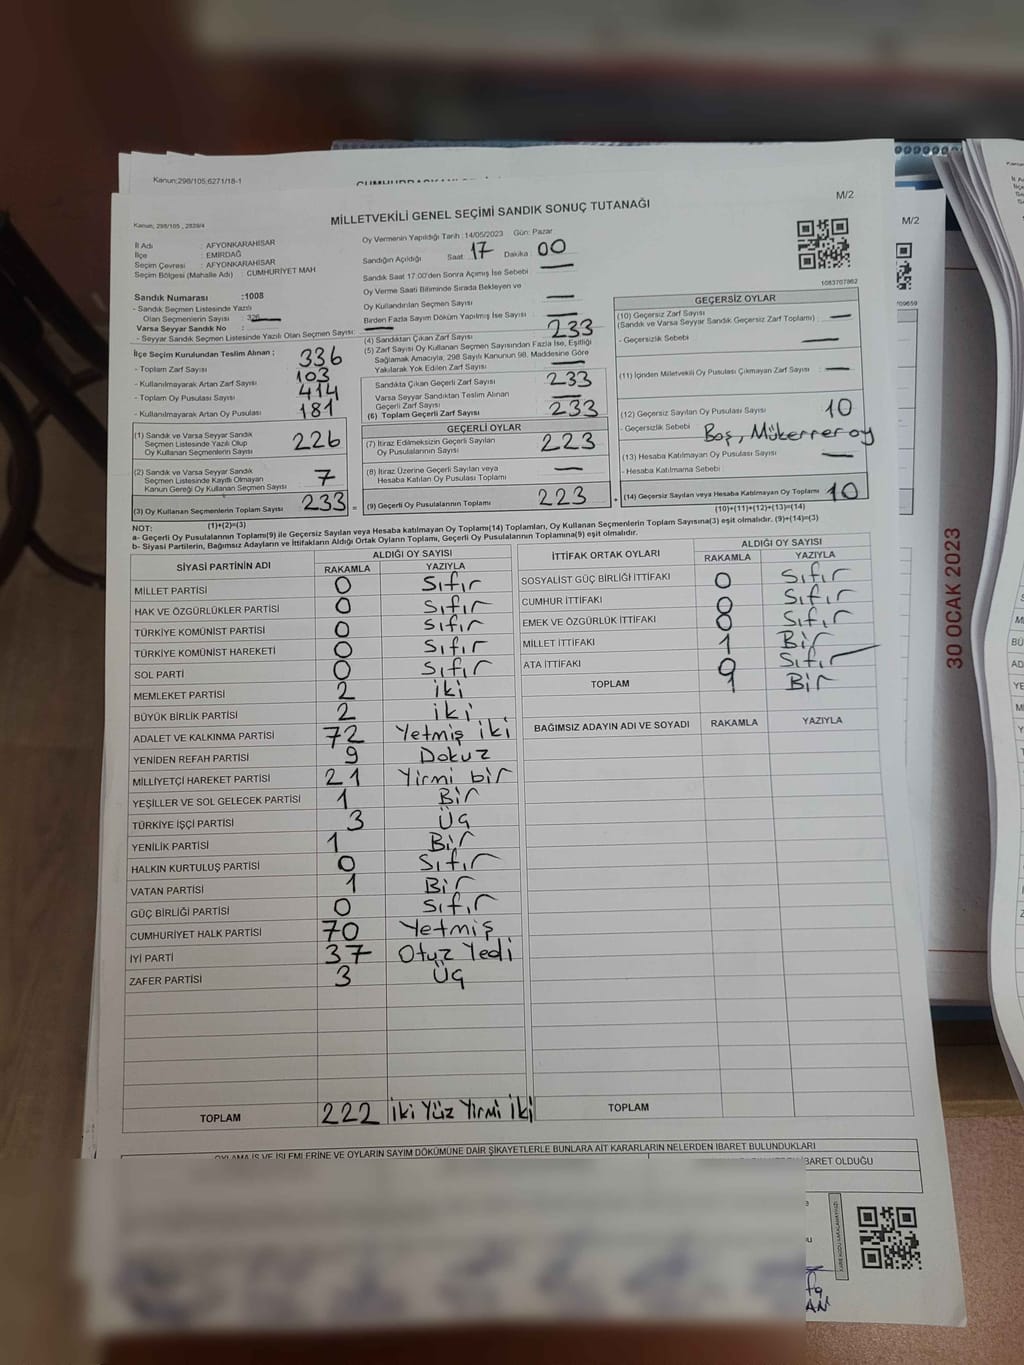 Kanun;298/105;6271/18-1
M/2
Kanun; 298/105 , 2839/4
MİLLETVEKİLİ GENEL SEÇİMİ SANDIK SONUÇ TUTANAĞI
M/2
İl Adı : AFYONKARAHİSAR
İlçe : EMİRDAĞ
Seçim Çevresi : AFYONKARAHİSAR
Seçim Bölgesi (Mahalle Adı) : CUMHURİYET MAH
Oy Vermenin Yapıldığı Tarih :14/05/2023 Gün: Pazar
Sandığın Açıldığı Saat : 17 Dakika : 00
Sandık Saat 17:00'den Sonra Açımış İse Sebebi : —
Oy Verme Saati Bitiminde Sırada Bekleyen ve
Oy Kullandırılan Seçmen Sayısı : —
Birden Fazla Sayım Döküm Yapılmış İse Sayısı : —
1083707862
Sandık Numarası :1008
- Sandık Seçmen Listesinde Yazılı
Olan Seçmenlerin Sayısı :
Varsa Seyyar Sandık No :
- Seyyar Sandık Seçmen Listesinde Yazılı Olan Seçmen Sayısı: —
İlçe Seçim Kurulundan Teslim Alınan ;
- Toplam Zarf Sayısı : 336
- Kullanılmayarak Artan Zarf Sayısı : 103
- Toplam Oy Pusulası Sayısı : 414
- Kullanılmayarak Artan Oy Pusulası : 181
(1) Sandık ve Varsa Seyyar Sandık
Seçmen Listesinde Yazılı Olup
Oy Kullanan Seçmenlerin Sayısı : 226
(2) Sandık ve Varsa Seyyar Sandık
Seçmen Listesinde Kayıtlı Olmayan
Kanun Gereği Oy Kullanan Seçmen Sayısı : 7
(3) Oy Kullanan Seçmenlerin Toplam Sayısı : 233
(1)+(2)=(3)
(4) Sandıktan Çıkan Zarf Sayısı : 233
(5) Zarf Sayısı Oy Kullanan Seçmen Sayısından Fazla İse, Eşitliği
Sağlamak Amacıyla, 298 Sayılı Kanunun 98. Maddesine Göre
Yakılarak Yok Edilen Zarf Sayısı : —
Sandıkta Çıkan Geçerli Zarf Sayısı : 233
Varsa Seyyar Sandıktan Teslim Alınan
Geçerli Zarf Sayısı : —
(6) Toplam Geçerli Zarf Sayısı : 233
GEÇERLİ OYLAR
(7) İtiraz Edilmeksizin Geçerli Sayılan
Oy Pusulalarının Sayısı : 223
(8) İtiraz Üzerine Geçerli Sayılan veya
Hesaba Katılan Oy Pusulası Toplamı : —
= (9) Geçerli Oy Pusulalarının Toplamı : 223 +
GEÇERSİZ OYLAR
(10) Geçersiz Zarf Sayısı
(Sandık ve Varsa Seyyar Sandık Geçersiz Zarf Toplamı) : —
- Geçersizlik Sebebi : —
(11) İçinden Milletvekili Oy Pusulası Çıkmayan Zarf Sayısı : —
(12) Geçersiz Sayılan Oy Pusulası Sayısı : 10
- Geçersizlik Sebebi : Boş, Mükerrer oy
(13) Hesaba Katılmayan Oy Pusulası Sayısı : —
- Hesaba Katılmama Sebebi :
(14) Geçersiz Sayılan veya Hesaba Katılmayan Oy Toplamı : 10
(10)+(11)+(12)+(13)=(14)
NOT:
a- Geçerli Oy Pusulalarının Toplamı(9) ile Geçersiz Sayılan veya Hesaba katılmayan Oy Toplamı(14) Toplamları, Oy Kullanan Seçmenlerin Toplam Sayısına(3) eşit olmalıdır. (9)+(14)=(3)
b- Siyasi Partilerin, Bağımsız Adayların ve İttifakların Aldığı Ortak Oyların Toplamı, Geçerli Oy Pusulalarının Toplamına(9) eşit olmalıdır.
SİYASİ PARTİNİN ADI ALDIĞI OY SAYISI
RAKAMLA YAZIYLA
MİLLET PARTİSİ 0 Sıfır
HAK VE ÖZGÜRLÜKLER PARTİSİ 0 Sıfır
TÜRKİYE KOMÜNİST PARTİSİ 0 Sıfır
TÜRKİYE KOMÜNİST HAREKETİ 0 Sıfır
SOL PARTİ 0 Sıfır
MEMLEKET PARTİSİ 2 iki
BÜYÜK BİRLİK PARTİSİ 2 iki
ADALET VE KALKINMA PARTİSİ 72 Yetmiş iki
YENİDEN REFAH PARTİSİ 9 Dokuz
MİLLİYETÇİ HAREKET PARTİSİ 21 Yirmi bir
YEŞİLLER VE SOL GELECEK PARTİSİ 1 Bir
TÜRKİYE İŞÇİ PARTİSİ 3 Üç
YENİLİK PARTİSİ 1 Bir
HALKIN KURTULUŞ PARTİSİ 0 Sıfır
VATAN PARTİSİ 1 Bir
GÜÇ BİRLİĞİ PARTİSİ 0 Sıfır
CUMHURİYET HALK PARTİSİ 70 Yetmiş
İYİ PARTİ 37 Otuz Yedi
ZAFER PARTİSİ 3 Üç
TOPLAM 222 İki Yüz Yirmi İki
İTTİFAK ORTAK OYLARI ALDIĞI OY SAYISI
RAKAMLA YAZIYLA
SOSYALİST GÜÇ BİRLİĞİ İTTİFAKI 0 Sıfır
CUMHUR İTTİFAKI 0 Sıfır
EMEK VE ÖZGÜRLÜK İTTİFAKI 0 Sıfır
MİLLET İTTİFAKI 1 Bir
ATA İTTİFAKI 0 Sıfır
TOPLAM 1 Bir
BAĞIMSIZ ADAYIN ADI VE SOYADI RAKAMLA YAZIYLA
TOPLAM
30 OCAK 2023
OYLAMA İŞ VE İŞLEMLERİNE VE OYLARIN SAYIM DÖKÜMÜNE DAİR ŞİKAYETLERLE BUNLARA AİT KARARLARIN NELERDEN İBARET BULUNDUKLARI
İBARET OLDUĞU